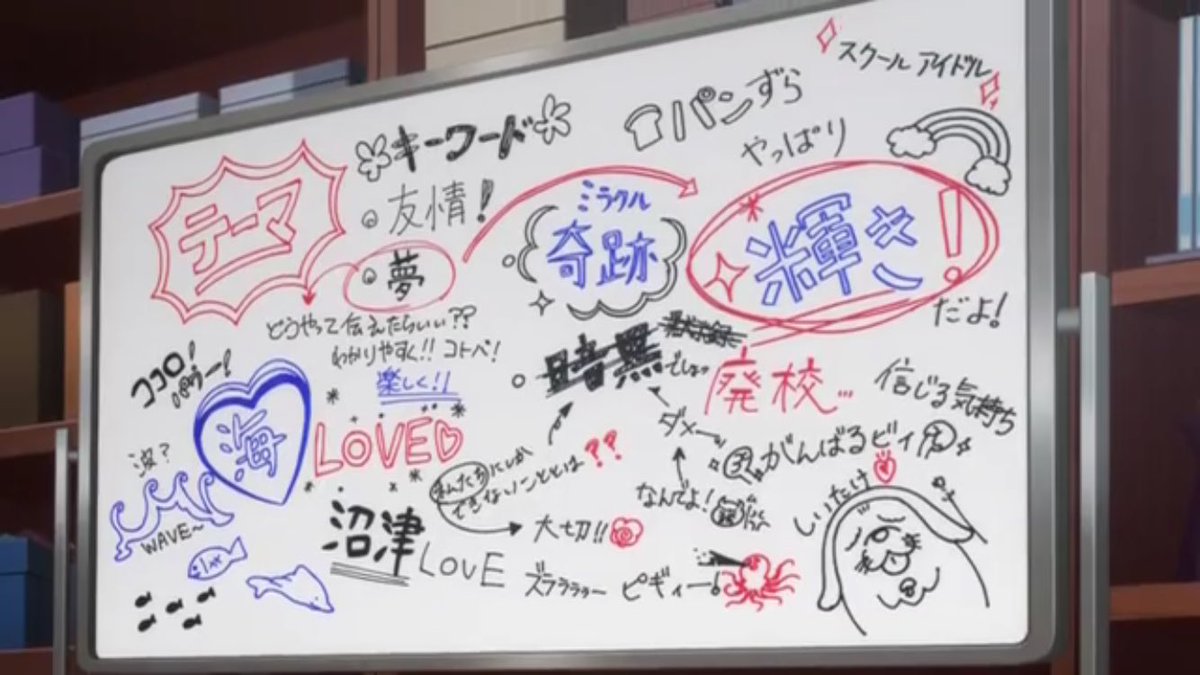 スクールアイドル
キーワード
パンずら
やっぱり
テーマ
友情!
夢
ミラクル
奇跡
輝き!
だよ!
どうやって伝えたらいい??
わかりやすく!! コトバ!
楽しく!!
ココロ!
パワー!
暗黒
でしょっ
廃校…
信じる気持ち
海
LOVE
波?
WAVE~
ダメーッ
がんばるビィ
私たちにしか
できないこととは??
なんでよ!
しいたけ
大切!!
沼津
LOVE
ズラララァー
ピギィー!